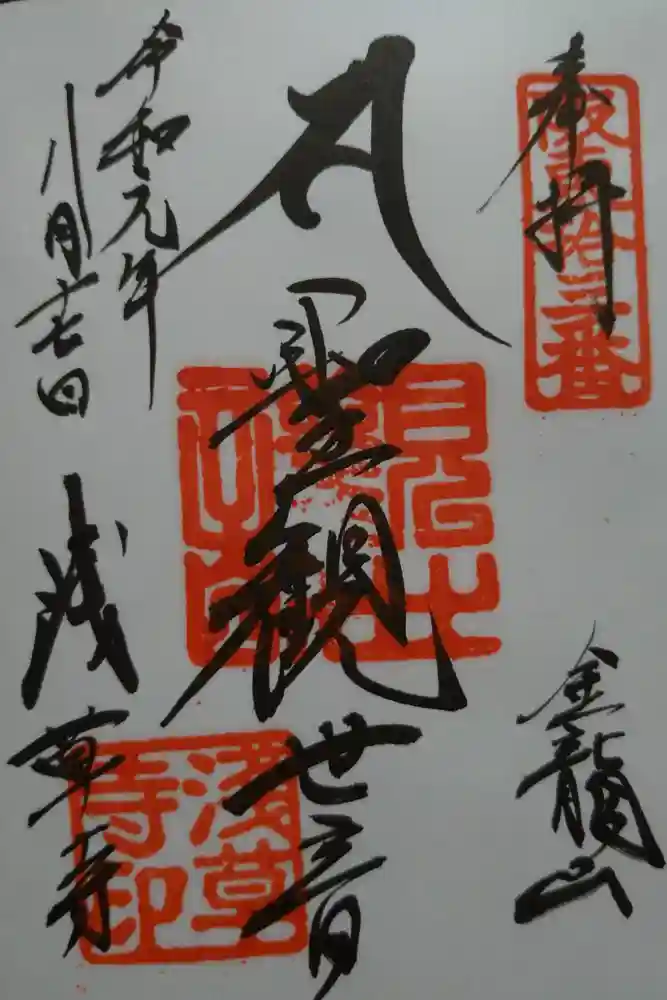 奉拝
坂東拾三番
金龍山
聖観世音
淺草寺印
令和元年
八月十七日
浅草寺